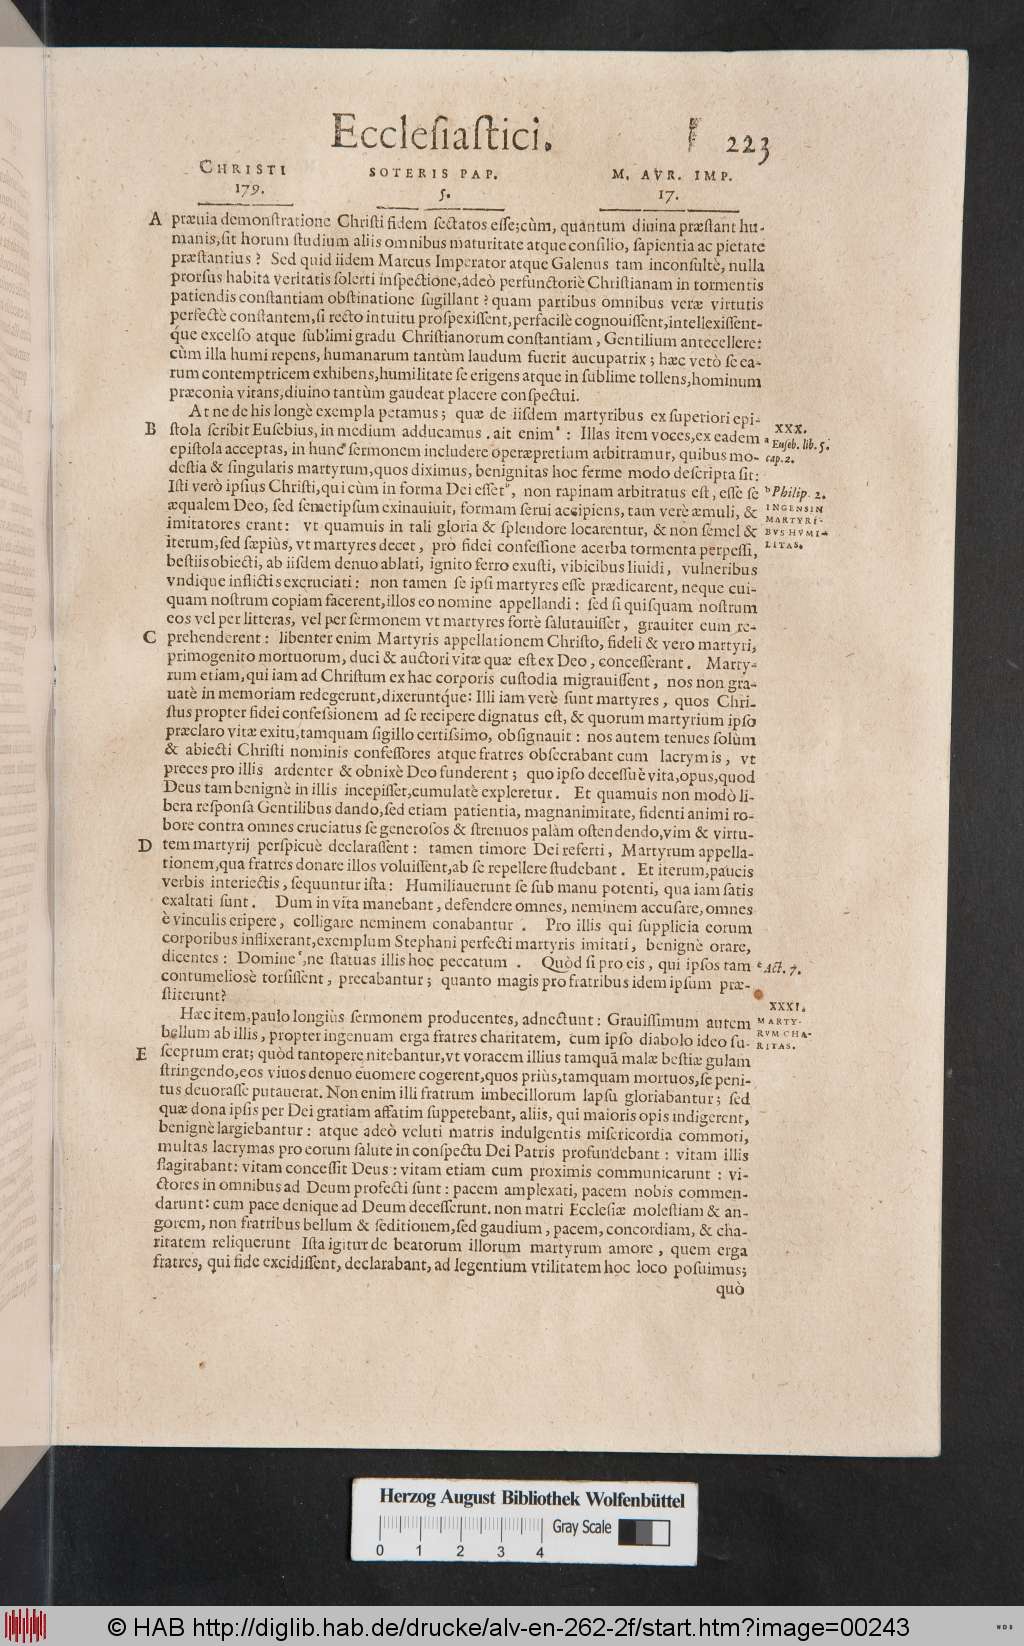 Eccleſiaſtici. 223
CHRISTI SOTERIS PAP. M. AVR. IMP.
179. 5. 17.
A præuia demonſtratione Chriſti fidem ſectatos eſſe;cùm, quantum diuina præſtant hu-
manis,ſit horum ſtudium aliis omnibus maturitate atque conſilio, ſapientia ac pietate
præſtantius? Sed quid iidem Marcus Imperator atque Galenus tam inconſultè, nulla
prorſus habita veritatis ſolerti inſpectione,adeò perfunctoriè Chriſtianam in tormentis
patiendis conſtantiam obſtinatione ſugillant? quam partibus omnibus veræ virtutis
perfectè conſtantem,ſi recto intuitu proſpexiſſent,perfacilè cognouiſſent,intellexiſſent-
q́ue excelſo atque ſublimi gradu Chriſtianorum conſtantiam, Gentilium antecellere:
cùm illa humi repens, humanarum tantùm laudum fuerit aucupatrix; hæc verò ſe ea-
rum contemptricem exhibens,humilitate ſe erigens atque in ſublime tollens,hominum
præconia vitans,diuino tantùm gaudeat placere conſpectui.
At ne de his longè exempla petamus; quæ de iiſdem martyribus ex ſuperiori epi-
B ſtola ſcribit Euſebius, in medium adducamus. ait enim a: Illas item voces,ex eadem
epiſtola acceptas, in hunc ſermonem includere operæpretium arbitramur, quibus mo-
deſtia & ſingularis martyrum,quos diximus, benignitas hoc ferme modo deſcripta ſit:
Iſti verò ipſius Chriſti,qui cùm in forma Dei eſſet b, non rapinam arbitratus eſt, eſſe ſe
æqualem Deo, ſed ſemetipſum exinauiuit, formam ſerui accipiens, tam verè æmuli, &
imitatores erant: vt quamuis in tali gloria & ſplendore locarentur, & non ſemel &
iterum,ſed ſæpiùs, vt martyres decet, pro fidei confeſſione acerba tormenta perpeſſi,
beſtiis obiecti, ab iiſdem denuo ablati, ignito ferro exuſti, vibicibus liuidi, vulneribus
vndique inflictis excruciati: non tamen ſe ipſi martyres eſſe prædicarent, neque cui-
quam noſtrum copiam facerent,illos eo nomine appellandi: ſed ſi quiſquam noſtrum
eos vel per litteras, vel per ſermonem vt martyres fortè ſalutauiſſet, grauiter eum re-
C prehenderent: libenter enim Martyris appellationem Chriſto, fideli & vero martyri,
primogenito mortuorum, duci & auctori vitæ quæ eſt ex Deo, conceſſerant. Marty-
rum etiam,qui iam ad Chriſtum ex hac corporis cuſtodia migrauiſſent, nos non gra-
uatè in memoriam redegerunt,dixeruntq́ue: Illi iam verè ſunt martyres, quos Chri-
ſtus propter fidei confeſsionem ad ſe recipere dignatus eſt, & quorum martyrium ipſo
præclaro vitæ exitu,tamquam ſigillo certiſsimo, obſignauit: nos autem tenues ſolùm
& abiecti Chriſti nominis confeſſores atque fratres obſecrabant cum lacrymis, vt
preces pro illis ardenter & obnixè Deo funderent; quo ipſo deceſſu è vita,opus,quod
Deus tam benignè in illis incepiſſet,cumulatè expleretur. Et quamuis non modò li-
bera reſponſa Gentilibus dando,ſed etiam patientia, magnanimitate, fidenti animi ro-
bore contra omnes cruciatus ſe generoſos & ſtrenuos palàm oſtendendo,vim & virtu-
D tem martyrij perſpicuè declaraſſent: tamen timore Dei referti, Martyrum appella-
tionem,qua fratres donare illos voluiſſent,ab ſe repellere ſtudebant. Et iterum,paucis
verbis interiectis, ſequuntur iſta: Humiliauerunt ſe ſub manu potenti, qua iam ſatis
exaltati ſunt. Dum in vita manebant, defendere omnes, neminem accuſare, omnes
è vinculis eripere, colligare neminem conabantur. Pro illis qui ſupplicia eorum
corporibus inflixerant,exemplum Stephani perfecti martyris imitati, benignè orare,
dicentes: Domine c,ne ſtatuas illis hoc peccatum. Quòd ſi pro eis, qui ipſos tam
contumelioſè torſiſſent, precabantur; quanto magis pro fratribus idem ipſum præ-
ſtiterunt?
Hæc item,paulo longiùs ſermonem producentes, adnectunt: Grauiſſimum autem
bellum ab illis, propter ingenuam erga fratres charitatem, cum ipſo diabolo ideo ſu-
E ſceptum erat; quòd tantopere nitebantur,vt voracem illius tamquã malæ beſtiæ gulam
ſtringendo,eos viuos denuo euomere cogerent,quos priùs,tamquam mortuos,ſe peni-
tus deuoraſſe putauerat. Non enim illi fratrum imbecillorum lapſu gloriabantur; ſed
quæ dona ipſis per Dei gratiam affatim ſuppetebant, aliis, qui maioris opis indigerent,
benignè largiebantur: atque adeò veluti matris indulgentis miſericordia commoti,
multas lacrymas pro eorum ſalute in conſpectu Dei Patris profundebant: vitam illis
flagitabant: vitam conceſſit Deus: vitam etiam cum proximis communicarunt: vi-
ctores in omnibus ad Deum profecti ſunt: pacem amplexati, pacem nobis commen-
darunt: cum pace denique ad Deum deceſſerunt. non matri Eccleſiæ moleſtiam & an-
gorem, non fratribus bellum & ſeditionem,ſed gaudium, pacem, concordiam, & cha-
ritatem reliquerunt Iſta igitur de beatorum illorum martyrum amore, quem erga
fratres, qui fide excidiſſent, declarabant, ad legentium vtilitatem hoc loco poſuimus;
quò
XXX.
a Euſeb. lib. 5.
cap. 2.
b Philip. 2.
INGENSIN
MARTYRI-
BVS HVMI-
LITAS.
c Act. 7.
XXXI.
MARTY-
RVM CHA-
RITAS.
Herzog August Bibliothek Wolfenbüttel
Gray Scale
0 1 2 3 4
© HAB http://diglib.hab.de/drucke/alv-en-262-2f/start.htm?image=00243